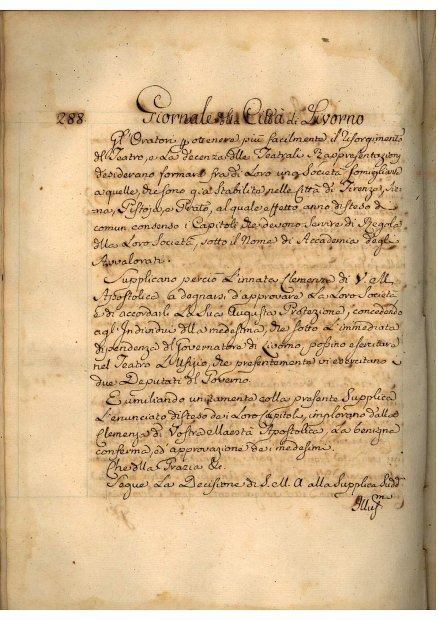 288 Giornale della Città di Livorno
Gl'Oratori p ottenere più facilmente il Risorgimento
del Teatro, e la decenza delle Teatrali Rappresentazioni
desiderano formare fra di Loro una Società somigliante
a quelle, che sono già Stabilite nelle Città di Firenze, Sie=
na, Pistoja, e Prato, al quale effetto anno disteso di
comun consenso i Capitoli che devono servire di Regola
alla Loro Società, sotto il Nome di Accademia degl'
Avvalorati.
Supplicano perciò L'innata Clemenza di V. M.
Apostolica a degnarsi d'approvare La Loro Società
e di accordarli La Sua Augusta Protezione, concedendo
agl'Individui della medesima, che sotto L'immediata
dipendenza del Governatore di Livorno, possino esercitare
nel Teatro L'Ufizio, che presentemente vi esercitano i
due Deputati di Governo.
E umiliando unitamente colla presente Supplica
L'enunciato disteso dei Loro Capitoli, implorano dalla
Clemenza di Vostra Maestà Apostolica, La benigna
conferma, ed approvazione de i medesimi.
Che della Grazia &c.
Segue La Decisione di S. M. A alla Supplica Sudd.
Illus^mo